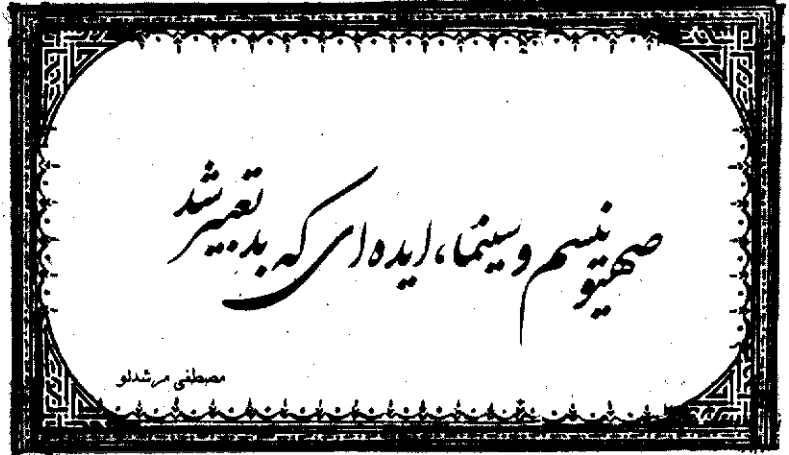 صهیونیسم و سینما، ایده‌ای که بد تعبیر شد
مصطفی مرشدلو